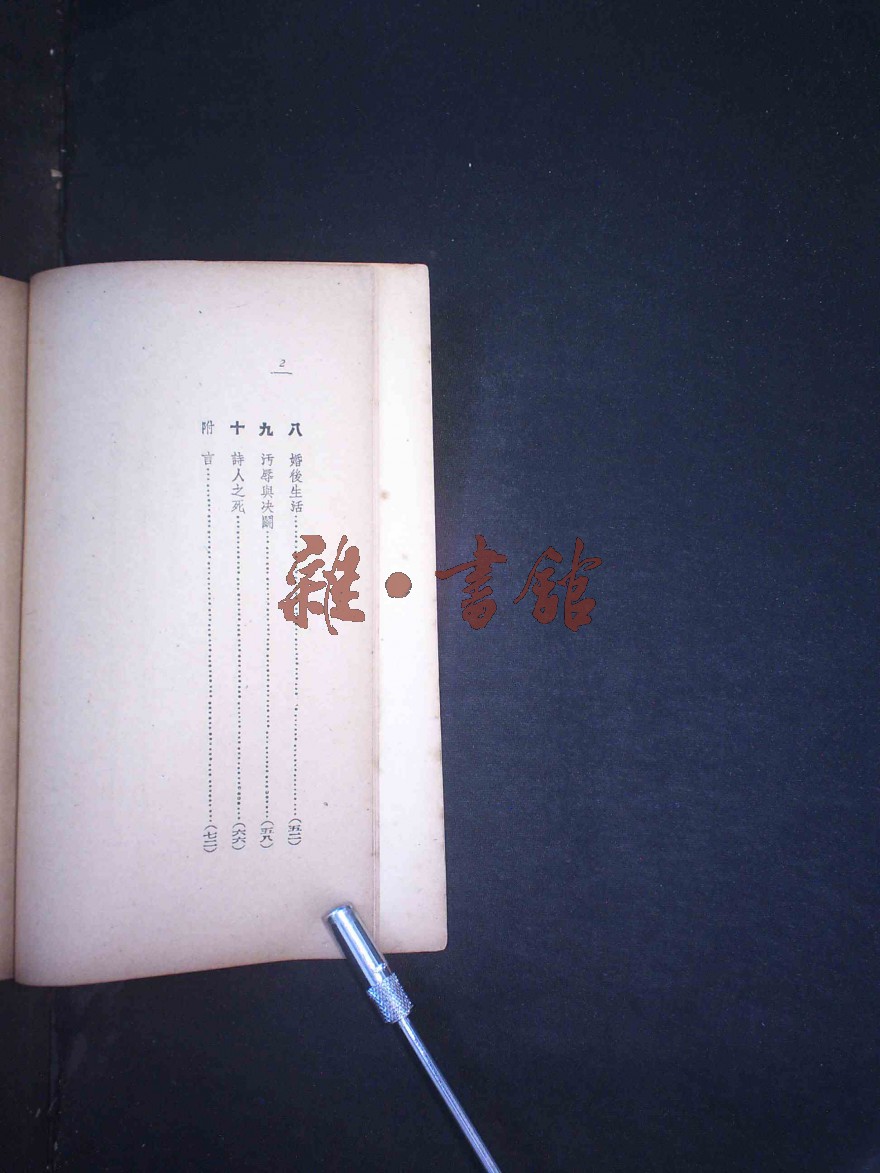 2
八 婚後生活……(五二)
九 汚辱與决鬭……(五八)
十 詩人之死……(六六)
附 言……(七二)
雜·書館